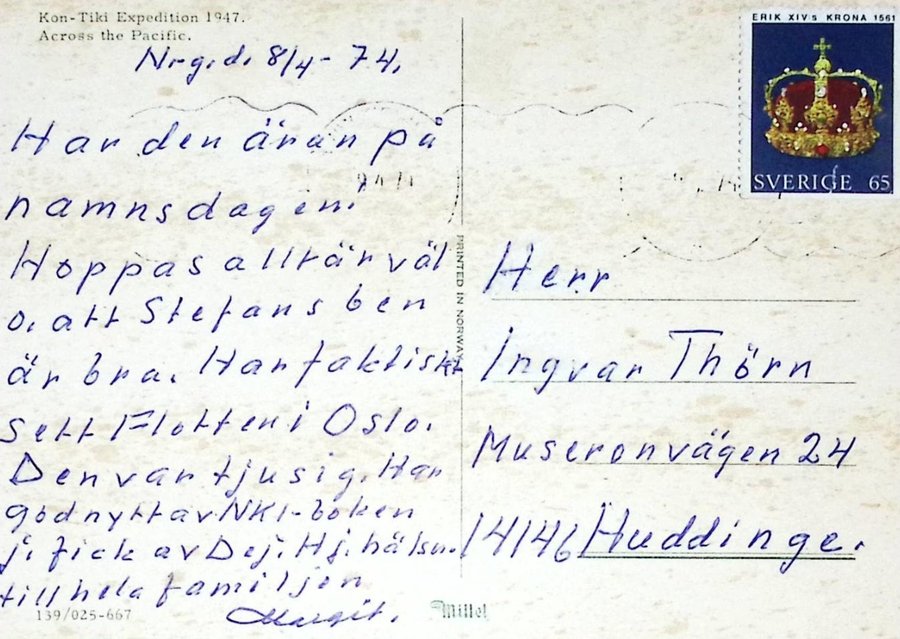 Kon-Tiki Expedition 1947.
Across the Pacific.
Nrg.d. 8/4-74.
Har den äran på
namnsdagen.
Hoppas allt är väl
o. att Stefans ben
är bra. Har faktiskt
sett Flotten i Oslo.
Den var tjusig. Har
god nytt av NKI-boken
j. fick av Dej. Hj. hälsn.
till hela familjen
Margit.
139/025-667
PRINTED IN NORWAY
Mittet
ERIK XIV:s KRONA 1561
SVERIGE 65
Herr
Ingvar Thörn
Museronvägen 24
14146 Huddinge.